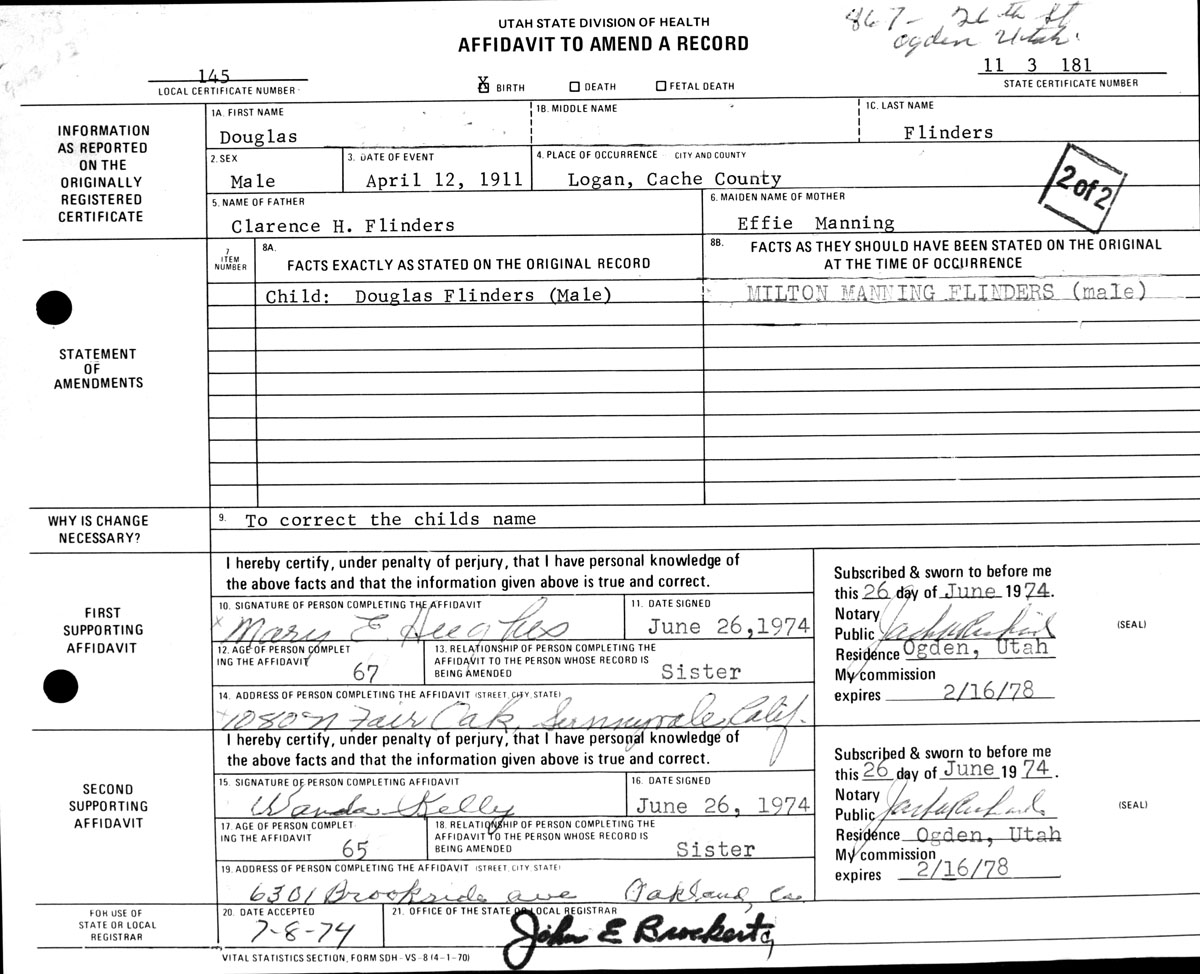 867- 26th St
Ogden Utah.
UTAH STATE DIVISION OF HEALTH
AFFIDAVIT TO AMEND A RECORD
145
LOCAL CERTIFICATE NUMBER
X BIRTH DEATH FETAL DEATH
11 3 181
STATE CERTIFICATE NUMBER
INFORMATION
AS REPORTED
ON THE
ORIGINALLY
REGISTERED
CERTIFICATE
1A. FIRST NAME
Douglas
1B. MIDDLE NAME
1C. LAST NAME
Flinders
2. SEX
Male
3. DATE OF EVENT
April 12, 1911
4. PLACE OF OCCURRENCE CITY AND COUNTY
Logan, Cache County
2 of 2
5. NAME OF FATHER
Clarence H. Flinders
6. MAIDEN NAME OF MOTHER
Effie Manning
STATEMENT
OF
AMENDMENTS
7
ITEM
NUMBER
8A.
FACTS EXACTLY AS STATED ON THE ORIGINAL RECORD
8B. FACTS AS THEY SHOULD HAVE BEEN STATED ON THE ORIGINAL
AT THE TIME OF OCCURRENCE
Child: Douglas Flinders (Male)
MILTON MANNING FLINDERS (male)
WHY IS CHANGE
NECESSARY?
9. To correct the childs name
FIRST
SUPPORTING
AFFIDAVIT
I hereby certify, under penalty of perjury, that I have personal knowledge of
the above facts and that the information given above is true and correct.
10. SIGNATURE OF PERSON COMPLETING THE AFFIDAVIT
x Mary E. Hughes
11. DATE SIGNED
June 26, 1974
12. AGE OF PERSON COMPLET
ING THE AFFIDAVIT
67
13. RELATIONSHIP OF PERSON COMPLETING THE
AFFIDAVIT TO THE PERSON WHOSE RECORD IS
BEING AMENDED
Sister
14. ADDRESS OF PERSON COMPLETING THE AFFIDAVIT (STREET, CITY, STATE)
1080 N Fair Oak, Sunnyvale, Calif.
Subscribed & sworn to before me
this 26 day of June 1974.
Notary
Public
Residence Ogden, Utah
My commission
expires 2/16/78
(SEAL)
SECOND
SUPPORTING
AFFIDAVIT
I hereby certify, under penalty of perjury, that I have personal knowledge of
the above facts and that the information given above is true and correct.
15. SIGNATURE OF PERSON COMPLETING AFFIDAVIT
Wanda Kelly
16. DATE SIGNED
June 26, 1974
17. AGE OF PERSON COMPLET
ING THE AFFIDAVIT
65
18. RELATIONSHIP OF PERSON COMPLETING THE
AFFIDAVIT TO THE PERSON WHOSE RECORD IS
BEING AMENDED
Sister
19. ADDRESS OF PERSON COMPLETING THE AFFIDAVIT (STREET, CITY, STATE)
6301 Brookside ave Oakland, Ca
Subscribed & sworn to before me
this 26 day of June 1974.
Notary
Public
Residence Ogden, Utah
My commission
expires 2/16/78
(SEAL)
FOR USE OF
STATE OR LOCAL
REGISTRAR
20. DATE ACCEPTED
7-8-74
21. OFFICE OF THE STATE OR LOCAL REGISTRAR
John E Brockert
VITAL STATISTICS SECTION, FORM SDH-VS-8 (4-1-70)